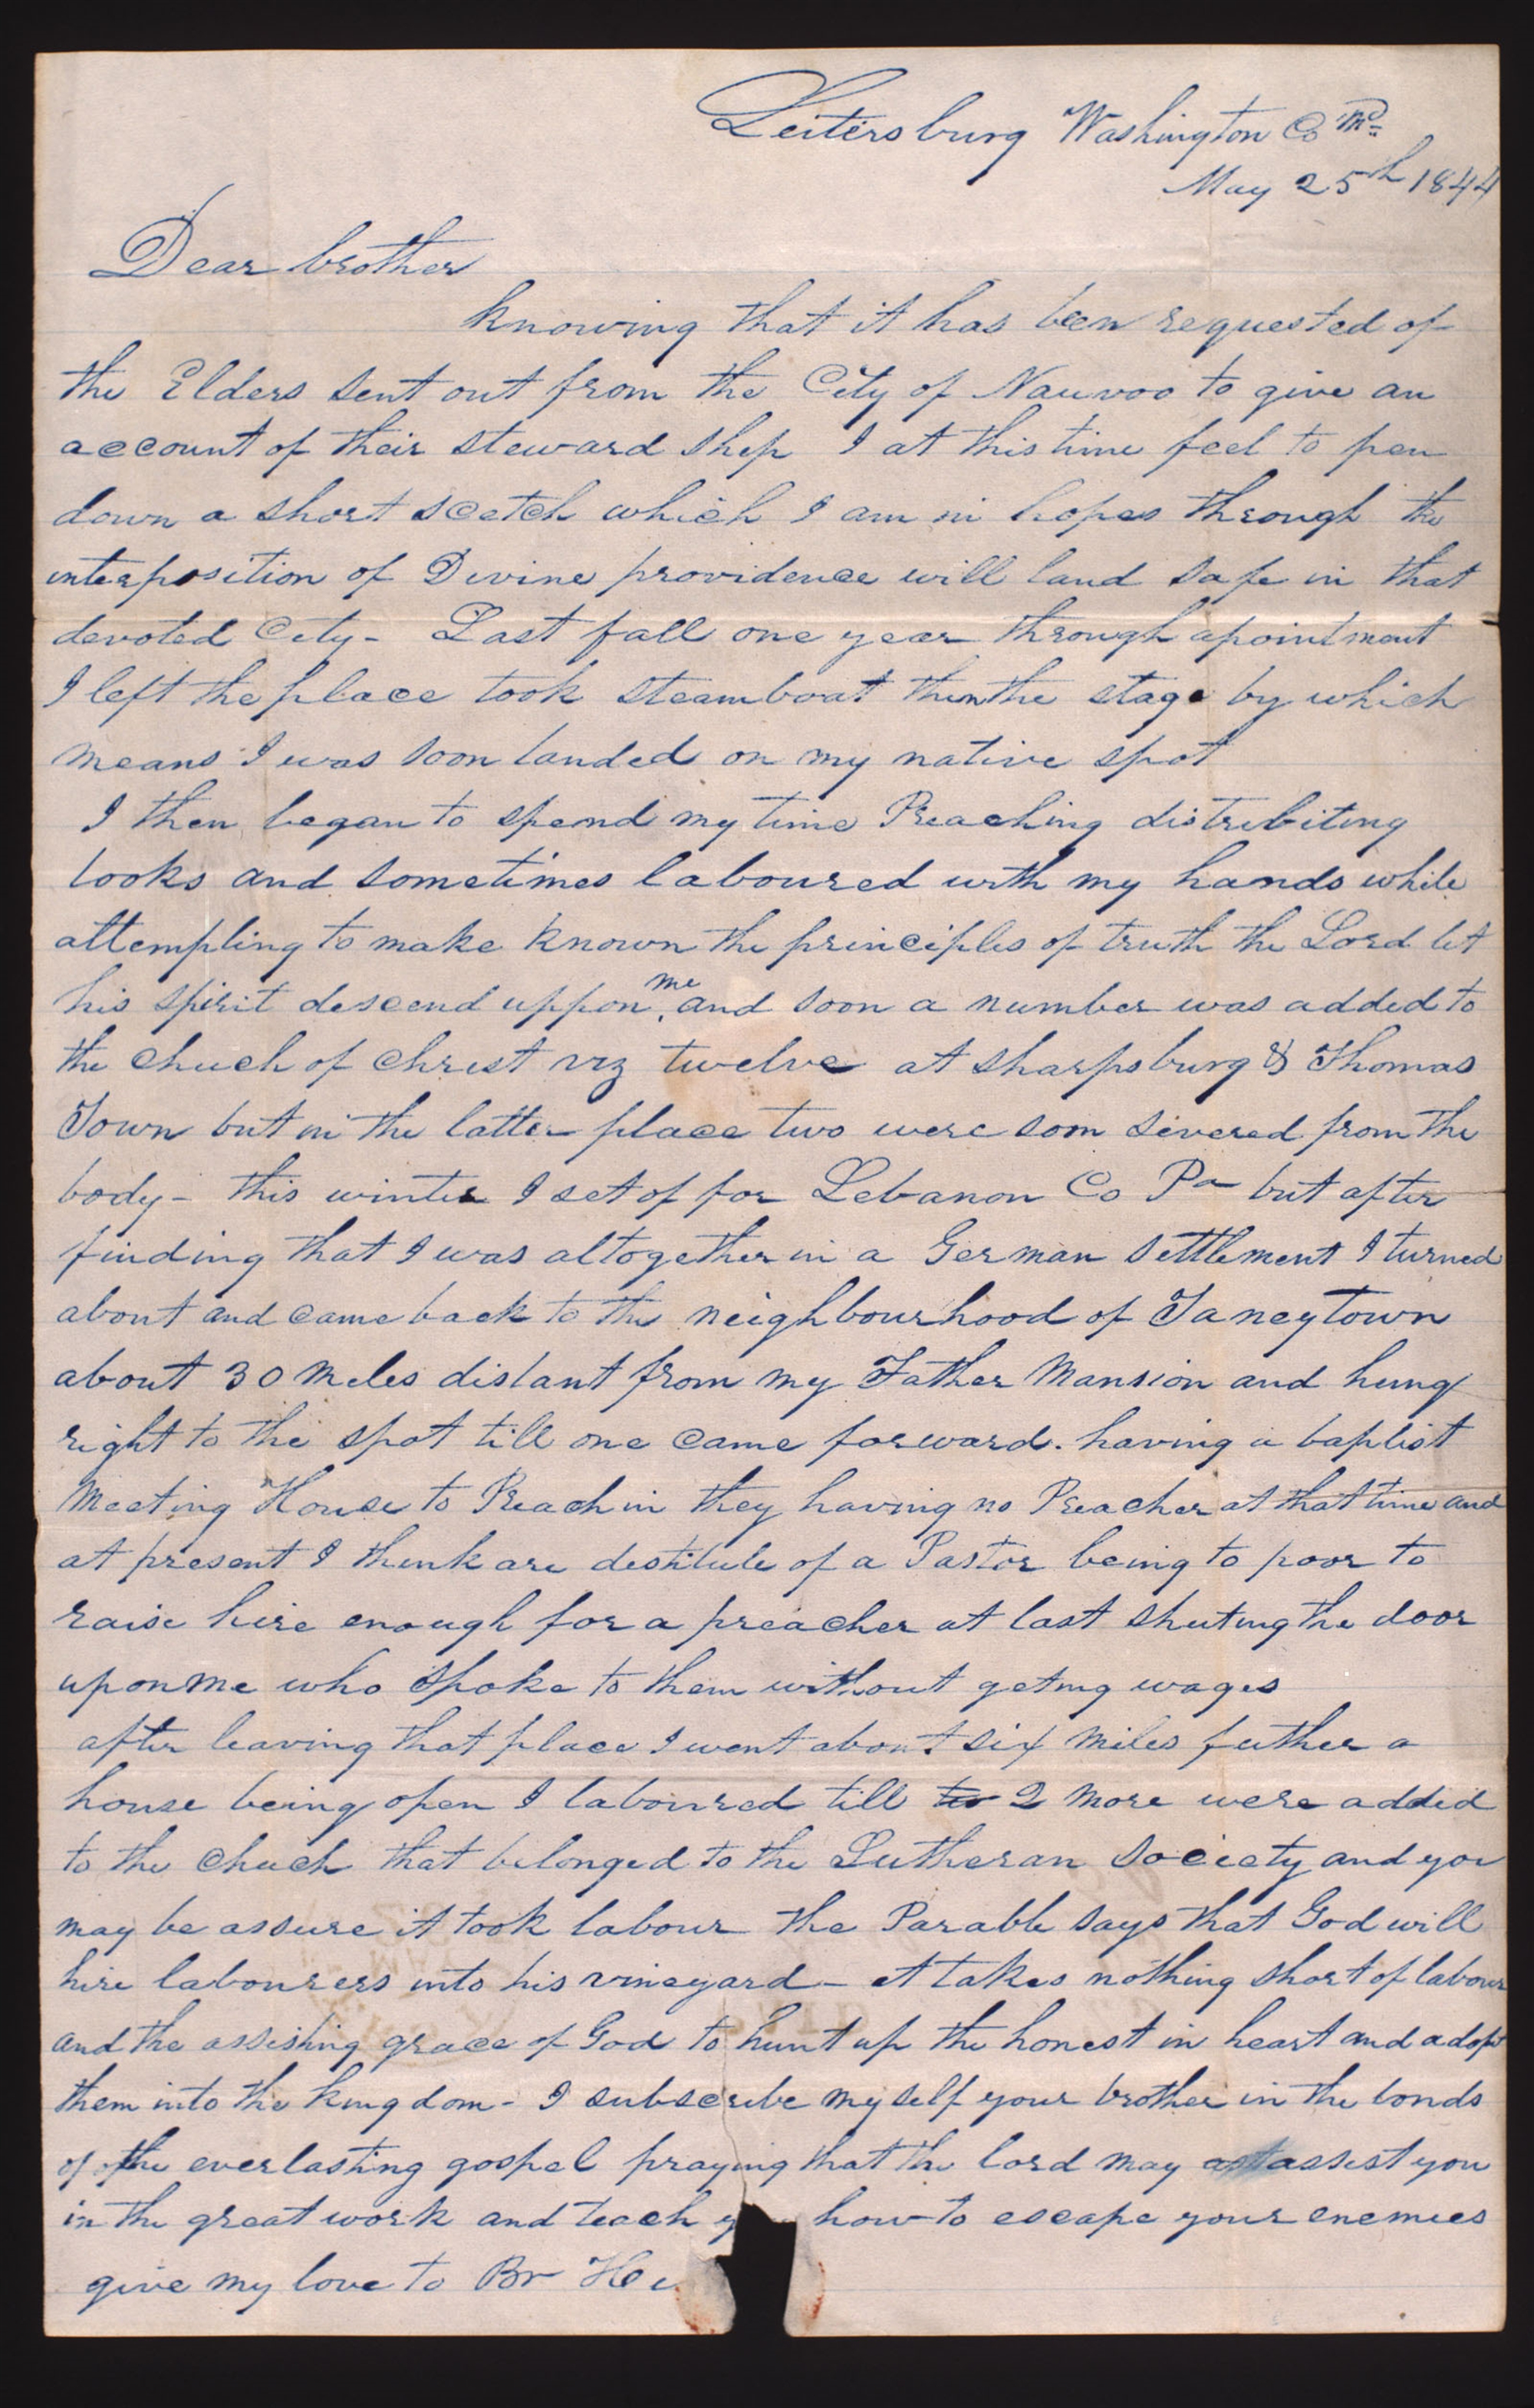 Leitersburg Washington Co Md
May 25th 1844
Dear brother
knowing that it has been requested of
the Elders sent out from the City of Nauvoo to give an
account of their steward shep I at this time feel to pen
down a short scetch which I am in hopes through the
interposition of Devine providence will land safe in that
devoted City - Last fall one year through apointment
I left the place took steamboat then the stage by which
means I was soon landed on my native spot
I then began to spend my time Preaching distrebiting
books and sometimes laboured with my hands while
attempting to make known the principles of truth the Lord let
his spirit descend uppon me and soon a number was added to
the chuch of Christ viz twelve at Sharpsburg & Thomas
Town but in the latter place two were soon severed from the
body - this winter I set of for Lebanon Co Pa but after
finding that I was altogether in a German settlement I turned
about and came back to the neighbourhood of Taneytown
about 30 Meles distant from my Father Mansion and hung
right to the spot till one came forward. having a baptist
Meeting House to Preach in they having no Preacher at that time and
at present I think are destitute of a Pastor being to poor to
raise hire enough for a preacher at last shuting the door
upon me who spoke to them without geting wages
after leaving that place I went about six miles futher a
house being open I laboured till to 2 more were added
to the chuch that belonged to the Lutheran Society and you
may be assure it took labour the Parable says that God will
hire labourers into his vineyard - it takes nothing short of labour
and the assisting grace of God to hunt up the honest in heart and adopt
them into the kingdom - I subscribe myself your brother in the bonds
of the everlasting gospel praying that the lord may assist you
in the great work and teach y how to escape your enemies
give my love to Br